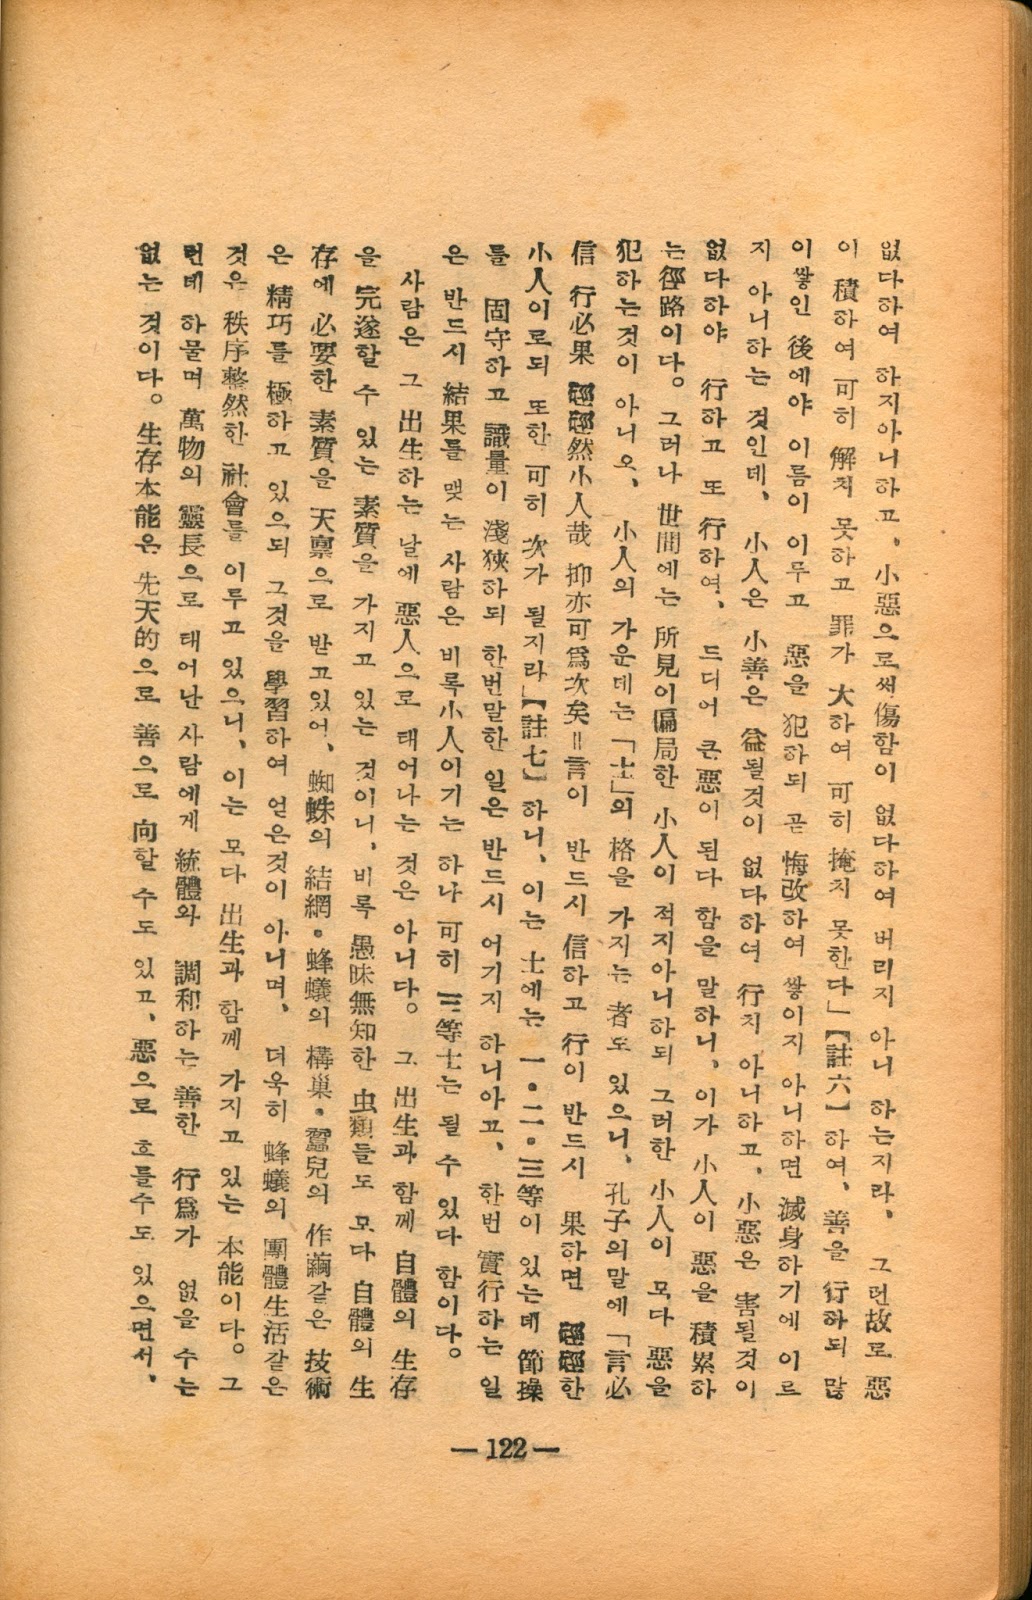 없다하여 하지아니하고、小惡으로써傷함이 없다하여 버리지 아니 하는지라、 그런故로 惡
이 積하여 可히 解치 못하고 罪가 大하여 可히 掩치 못한다」【註六】하여、善을 行하되 많
이쌓인 後에야 이름이 이루고 惡을 犯하되 곧 悔改하여 쌓이지 아니하면 滅身하기에 이르
지 아니하는 것인데、 小人은 小善은 益될것이 없다하여 行치 아니하고、小惡은 害될것이
없다하야 行하고 또 行하여、 드디어 큰惡이 된다 함을 말하니、이가 小人이 惡을 積累하
는徑路이다。그러나 世間에는 所見이偏局한 小人이 적지아니하되 그러한 小人이 모다 惡을
犯하는것이 아니오、 小人의 가운데는「士」의 格을 가지는 者도 있으니、孔子의말에「言必
信 行必果 硜硜然小人哉 抑亦可爲次矣=言이 반드시 信하고 行이 반드시 果하면 硜硜한
小人이로되 또한 可히 次가 될지라」【註七】하니、이는 士에는 一·二·三等이 있는데 節操
를 固守하고 識量이 淺狹하되 한번말한 일은 반드시 어기지 하니아고、 한번 實行하는 일
은 반드시 結果를 맺는 사람은 비록小人이기는 하나 可히 三等士는 될수 있다 함이다。
사람은 그 出生하는 날에 惡人으로 태어나는 것은 아니다。그 出生과 함께 自體의 生存
을 完遂할 수 있는 素質을 가지고 있는 것이니、비록 愚昧無知한 虫類들도 모다 自體의 生
存에 必要한 素質을 天禀으로 받고있어、蜘蛛의 結網·蜂蟻의 構巢·蠶兒의 作繭같은 技術
은 精巧를 極하고 있으되 그것을 學習하여 얻은것이 아니며、 더욱히 蜂蟻의 團體生活같은
것은 秩序整然한 社會를 이루고 있으니、이는 모다 出生과 함께 가지고 있는 本能이다。그
런데 하물며 萬物의 靈長으로 태어난 사람에게 統體와 調和하는 善한 行爲가 없을 수는
없는 것이다。生存本能은 先天的으로 善으로 向할 수도 있고、惡으로 흐를수도 있으면서、
— 122 —